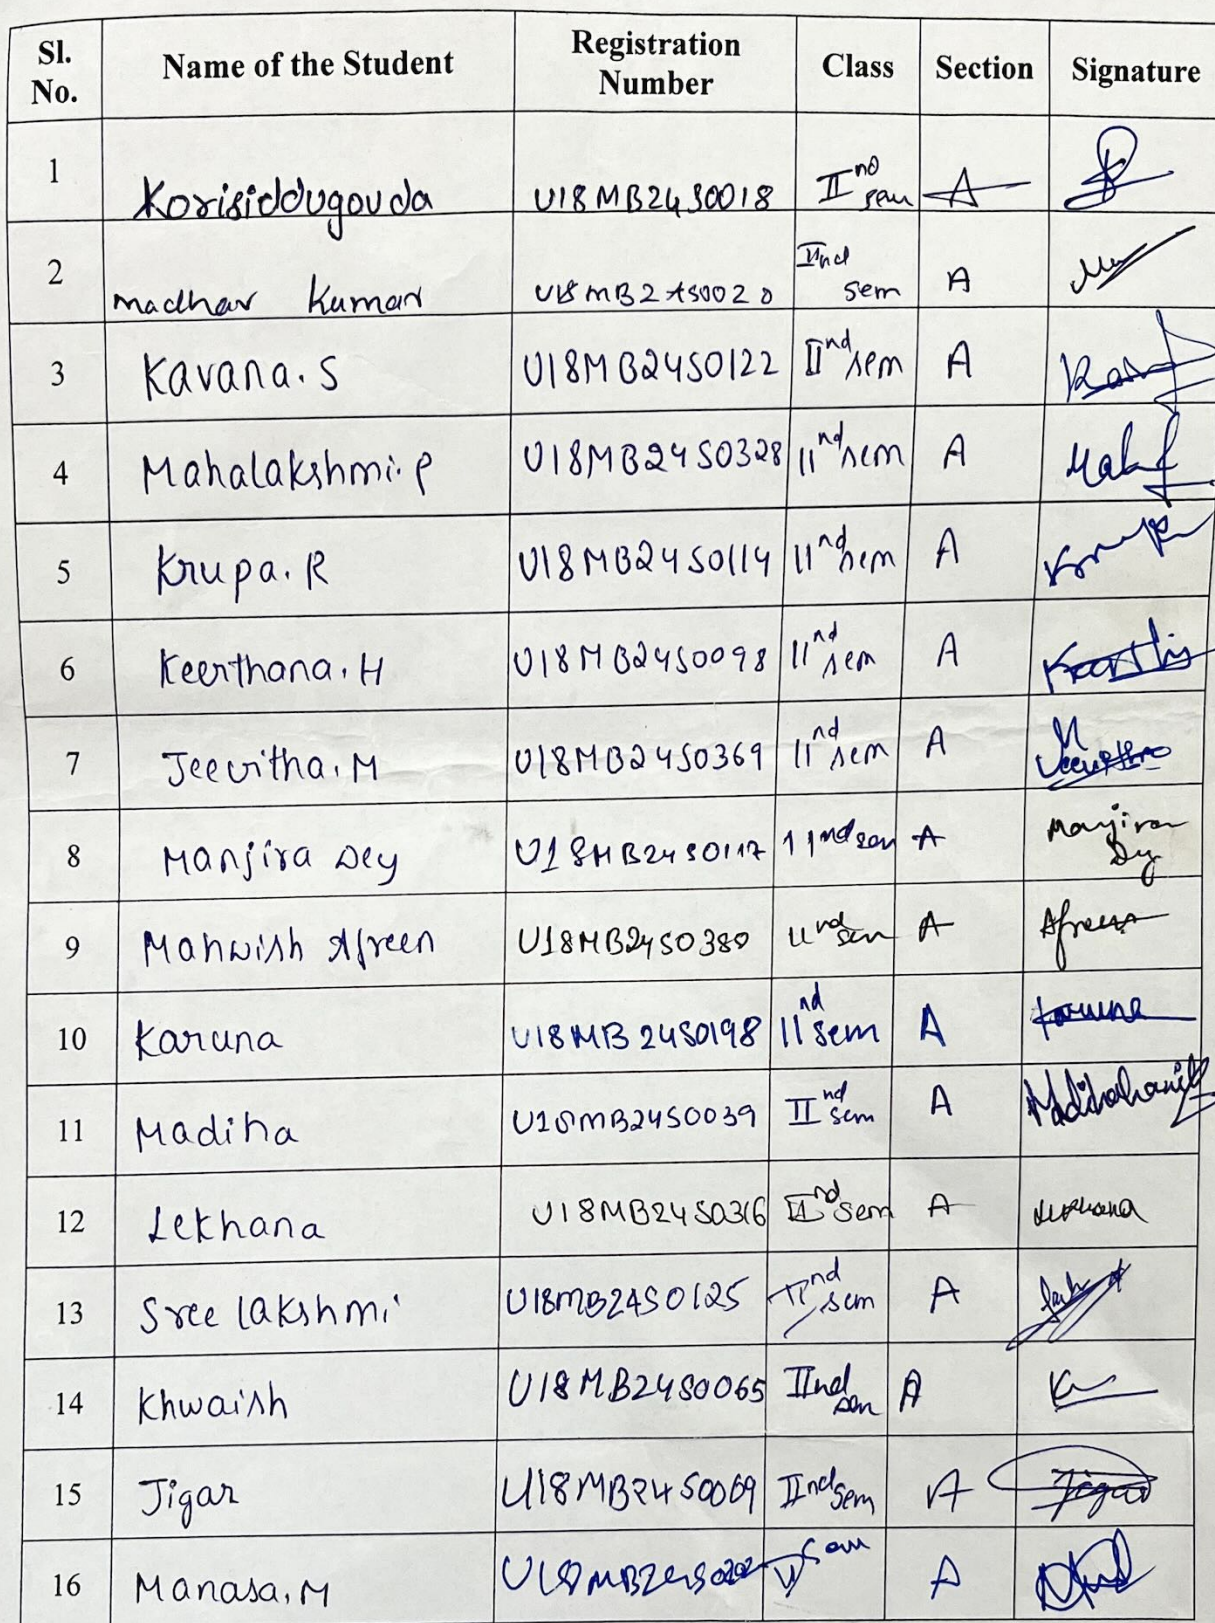 Sl. No. Name of the Student Registration Number Class Section Signature
1 Korisiddugouda U18MB24S0018 IInd sem A
2 Madhav Kumar U18MB24S0020 IInd sem A
3 Kavana. S U18MB24S0122 IInd sem A
4 Mahalakshmi. P U18MB24S0328 IInd sem A
5 Krupa. R U18MB24S0114 IInd sem A
6 Keerthana. H U18MB24S0098 IInd sem A
7 Jeevitha. M U18MB24S0369 IInd sem A
8 Manjira Dey IInd sem A Manjira Dey
9 Mahwish Afreen U18MB24S0380 IInd sem A Afreen
10 Karuna U18MB24S0198 IInd sem A Karuna
11 Madiha U18MB24S0039 IInd sem A
12 Lekhana U18MB24S0316 IInd sem A Lekhana
13 Sree lakshmi U18MB24S0125 IInd sem A
14 Khwaish U18MB24S0065 IInd sem A
15 Jigar U18MB24S0069 IInd sem A Jigar
16 Manasa. M II Sem A